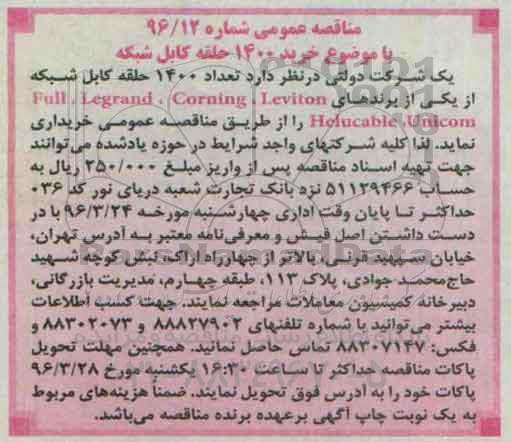 مناقصه عمومی شماره ۹۶/۱۲
با موضوع خرید ۱۴۰۰ حلقه کابل شبکه
یک شرکت دولتی درنظر دارد تعداد ۱۴۰۰ حلقه کابل شبکه
از یکی از برندهای Full ، Legrand ، Corning ، Leviton
Helucable ،Unicom را از طریق مناقصه عمومی خریداری
نماید. لذا کلیه شرکتهای واجد شرایط در حوزه یادشده می‌توانند
جهت تهیه اسناد مناقصه پس از واریز مبلغ ۲۵۰/۰۰۰ ریال به
حساب ۵۱۱۲۹۴۶۶ نزد بانک تجارت شعبه دریای نور کد ۰۳۶
حداکثر تا پایان وقت اداری چهارشنبه مورخه ۹۶/۳/۲۴ با در
دست داشتن اصل فیش و معرفی‌نامه معتبر به آدرس تهران،
خیابان سپهبد قرنی، بالاتر از چهارراه اراک، نبش کوچه شهید
حاج‌محمد جوادی، پلاک ۱۱۳، طبقه چهارم، مدیریت بازرگانی،
دبیرخانه کمیسیون معاملات مراجعه نمایند. جهت کسب اطلاعات
بیشتر می‌توانید با شماره تلفنهای ۸۸۸۲۷۹۰۲ و ۸۸۳۰۲۰۷۳ و
فکس: ۸۸۳۰۷۱۴۷ تماس حاصل نمائید. همچنین مهلت تحویل
پاکات مناقصه حداکثر تا ساعت ۱۶:۳۰ یکشنبه مورخ ۹۶/۳/۲۸
پاکات خود را به آدرس فوق تحویل نمایند. ضمناً هزینه‌های مربوط
به یک نوبت چاپ آگهی برعهده برنده مناقصه می‌باشد.